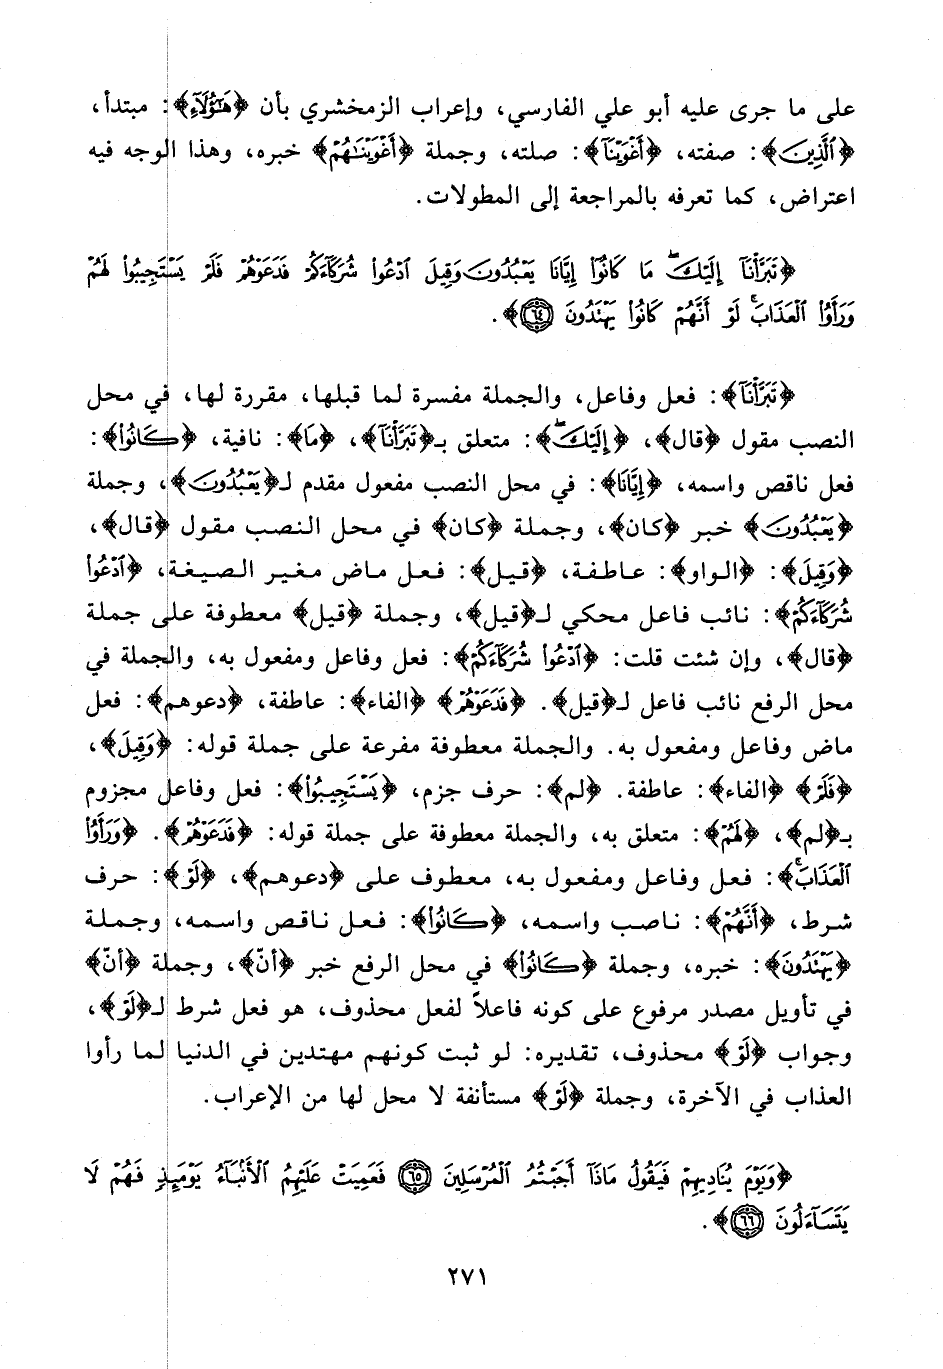 على ما جرى عليه أبو علي الفارسي، وإعراب الزمخشري بأن ﴿هَٰٓؤُلَآءِ﴾: مبتدأ،
﴿ٱلَّذِينَ﴾: صفته، ﴿أَغْوَيْنَآ﴾: صلته، وجملة ﴿أَغْوَيْنَٰهُمْ﴾ خبره، وهذا الوجه فيه
اعتراض، كما تعرفه بالمراجعة إلى المطولات.
﴿تَبَرَّأْنَآ إِلَيْكَ ۖ مَا كَانُوٓا۟ إِيَّانَا يَعْبُدُونَ وَقِيلَ ٱدْعُوا۟ شُرَكَآءَكُمْ فَدَعَوْهُمْ فَلَمْ يَسْتَجِيبُوا۟ لَهُمْ
وَرَأَوُا۟ ٱلْعَذَابَ ۚ لَوْ أَنَّهُمْ كَانُوا۟ يَهْتَدُونَ ٦٤﴾.
﴿تَبَرَّأْنَآ﴾: فعل وفاعل، والجملة مفسرة لما قبلها، مقررة لها، في محل
النصب مقول ﴿قال﴾، ﴿إِلَيْكَ ۖ﴾: متعلق بـ﴿تَبَرَّأْنَآ﴾، ﴿مَا﴾: نافية، ﴿كَانُوٓا۟﴾:
فعل ناقص واسمه، ﴿إِيَّانَا﴾: في محل النصب مفعول مقدم لـ﴿يَعْبُدُونَ﴾، وجملة
﴿يَعْبُدُونَ﴾ خبر ﴿كان﴾، وجملة ﴿كان﴾ في محل النصب مقول ﴿قال﴾،
﴿وَقِيلَ﴾: ﴿الواو﴾: عاطفة، ﴿قيل﴾: فعل ماض مغير الصيغة، ﴿ٱدْعُوا۟
شُرَكَآءَكُمْ﴾: نائب فاعل محكي لـ﴿قيل﴾، وجملة ﴿قيل﴾ معطوفة على جملة
﴿قال﴾، وإن شئت قلت: ﴿ٱدْعُوا۟ شُرَكَآءَكُمْ﴾: فعل وفاعل ومفعول به، والجملة في
محل الرفع نائب فاعل لـ﴿قيل﴾. ﴿فَدَعَوْهُمْ﴾ ﴿الفاء﴾: عاطفة، ﴿دعوهم﴾: فعل
ماض وفاعل ومفعول به. والجملة معطوفة مفرعة على جملة قوله: ﴿وَقِيلَ﴾،
﴿فَلَمْ﴾ ﴿الفاء﴾: عاطفة. ﴿لم﴾: حرف جزم، ﴿يَسْتَجِيبُوا۟﴾: فعل وفاعل مجزوم
بـ﴿لم﴾، ﴿لَهُمْ﴾: متعلق به، والجملة معطوفة على جملة قوله: ﴿فَدَعَوْهُمْ﴾. ﴿وَرَأَوُا۟
ٱلْعَذَابَ ۚ﴾: فعل وفاعل ومفعول به، معطوف على ﴿دعوهم﴾، ﴿لَوْ﴾: حرف
شرط، ﴿أَنَّهُمْ﴾: ناصب واسمه، ﴿كَانُوا۟﴾: فعل ناقص واسمه، وجملة
﴿يَهْتَدُونَ﴾: خبره، وجملة ﴿كَانُوا۟﴾ في محل الرفع خبر ﴿أنّ﴾، وجملة ﴿أنّ﴾
في تأويل مصدر مرفوع على كونه فاعلاً لفعل محذوف، هو فعل شرط لـ﴿لَوْ﴾،
وجواب ﴿لَوْ﴾ محذوف، تقديره: لو ثبت كونهم مهتدين في الدنيا لما رأوا
العذاب في الآخرة، وجملة ﴿لَوْ﴾ مستأنفة لا محل لها من الإعراب.
﴿وَيَوْمَ يُنَادِيهِمْ فَيَقُولُ مَاذَآ أَجَبْتُمُ ٱلْمُرْسَلِينَ ٦٥ فَعَمِيَتْ عَلَيْهِمُ ٱلْأَنۢبَآءُ يَوْمَئِذٍ فَهُمْ لَا
يَتَسَآءَلُونَ ٦٦﴾.
٢٧١